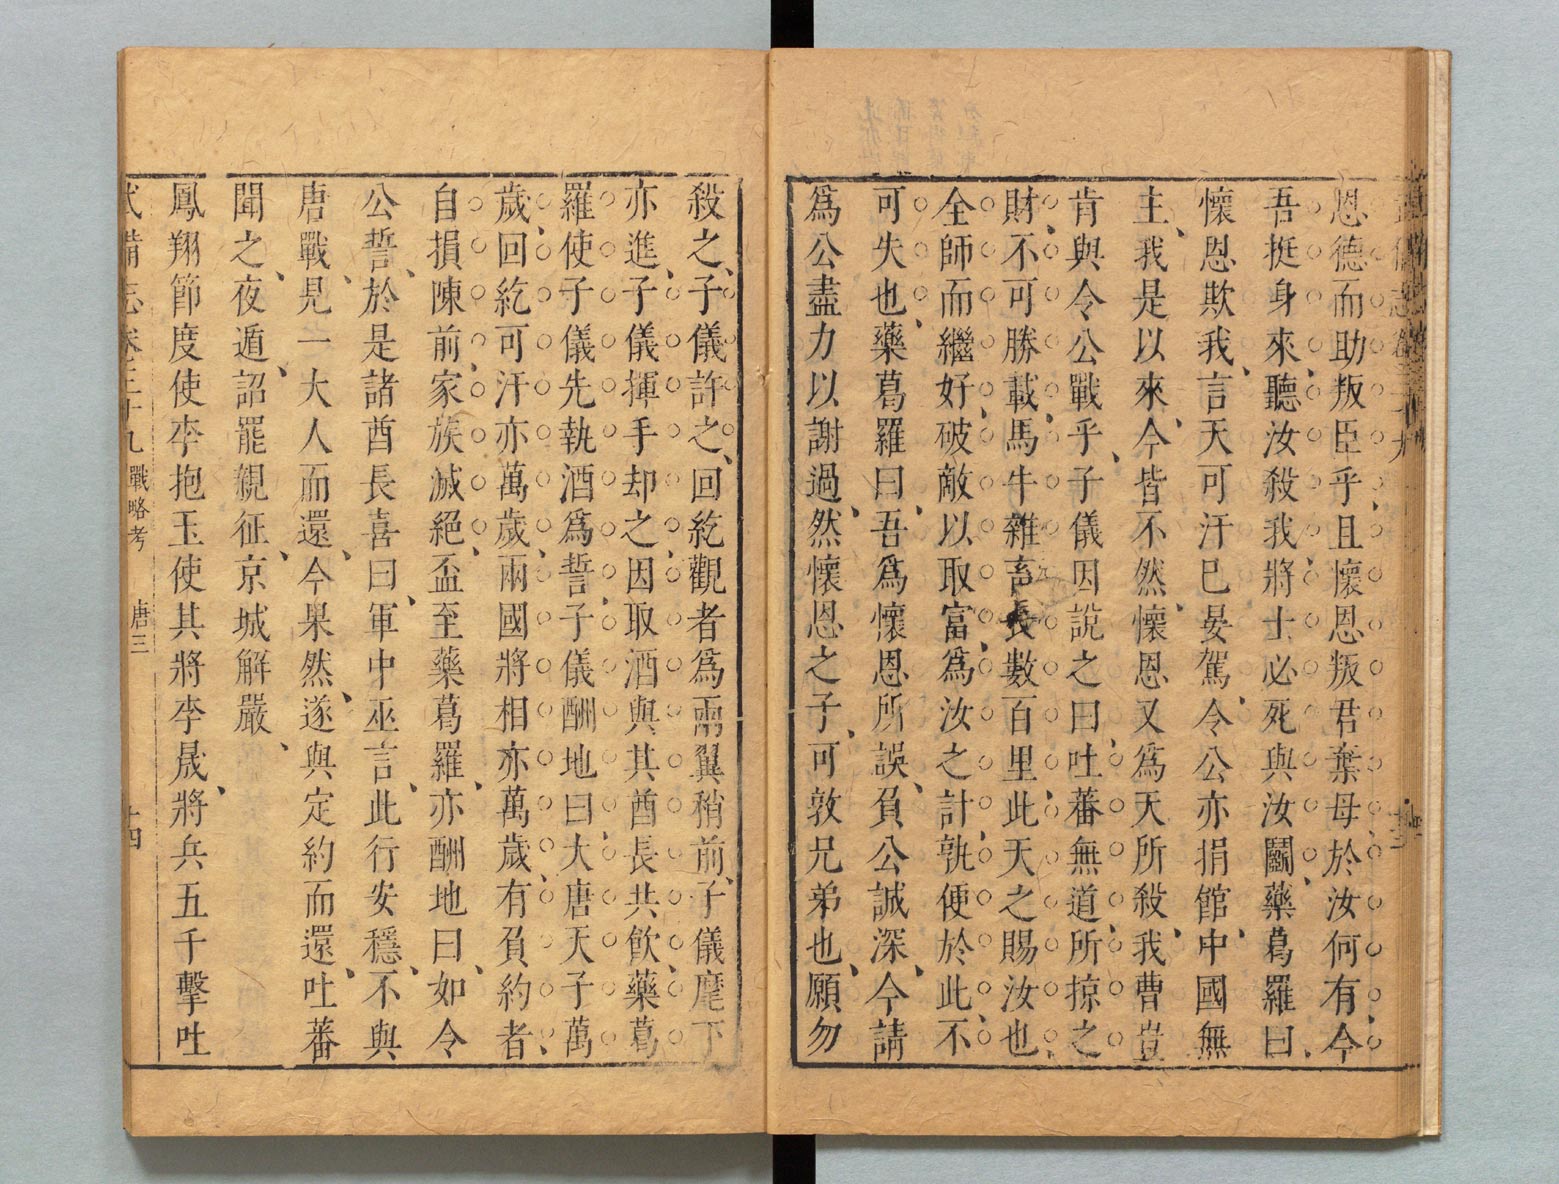 恩德而助叛臣乎、且懷恩叛君棄母於汝何有、今
吾挺身來、聽汝殺我、將士必死與汝鬭、藥葛羅曰、
懷恩欺我、言天可汗已晏駕、令公亦捐館、中國無
主、我是以來、今皆不然、懷恩又爲天所殺、我曹豈
肯與令公戰乎、子儀因說之曰、吐蕃無道、所掠之
財、不可勝載、馬牛雜畜長數百里、此天之賜汝也、
全師而繼好、破敵以取富、爲汝之計、孰便於此、不
可失也、藥葛羅曰、吾爲懷恩所誤、負公誠深、今請
爲公盡力以謝過、然懷恩之子、可敦兄弟也、願勿
殺之、子儀許之、回紇觀者爲兩翼稍前、子儀麾下
亦進、子儀揮手却之、因取酒與其酋長共飮、藥葛
羅使子儀先執酒爲誓、子儀酬地曰、大唐天子萬
歲、回紇可汗亦萬歲、兩國將相亦萬歲、有負約者、
自損陳前、家族滅絕、盃至藥葛羅、亦酬地曰、如令
公誓、於是諸酋長喜曰、軍中巫言、此行安穩、不與
唐戰、見一大人而還、今果然、遂與定約而還、吐蕃
聞之、夜遁、詔罷親征、京城解嚴、
鳳翔節度使李抱玉使其將李晟、將兵五千擊吐
武備志卷三十九 戰略考 唐三 十四